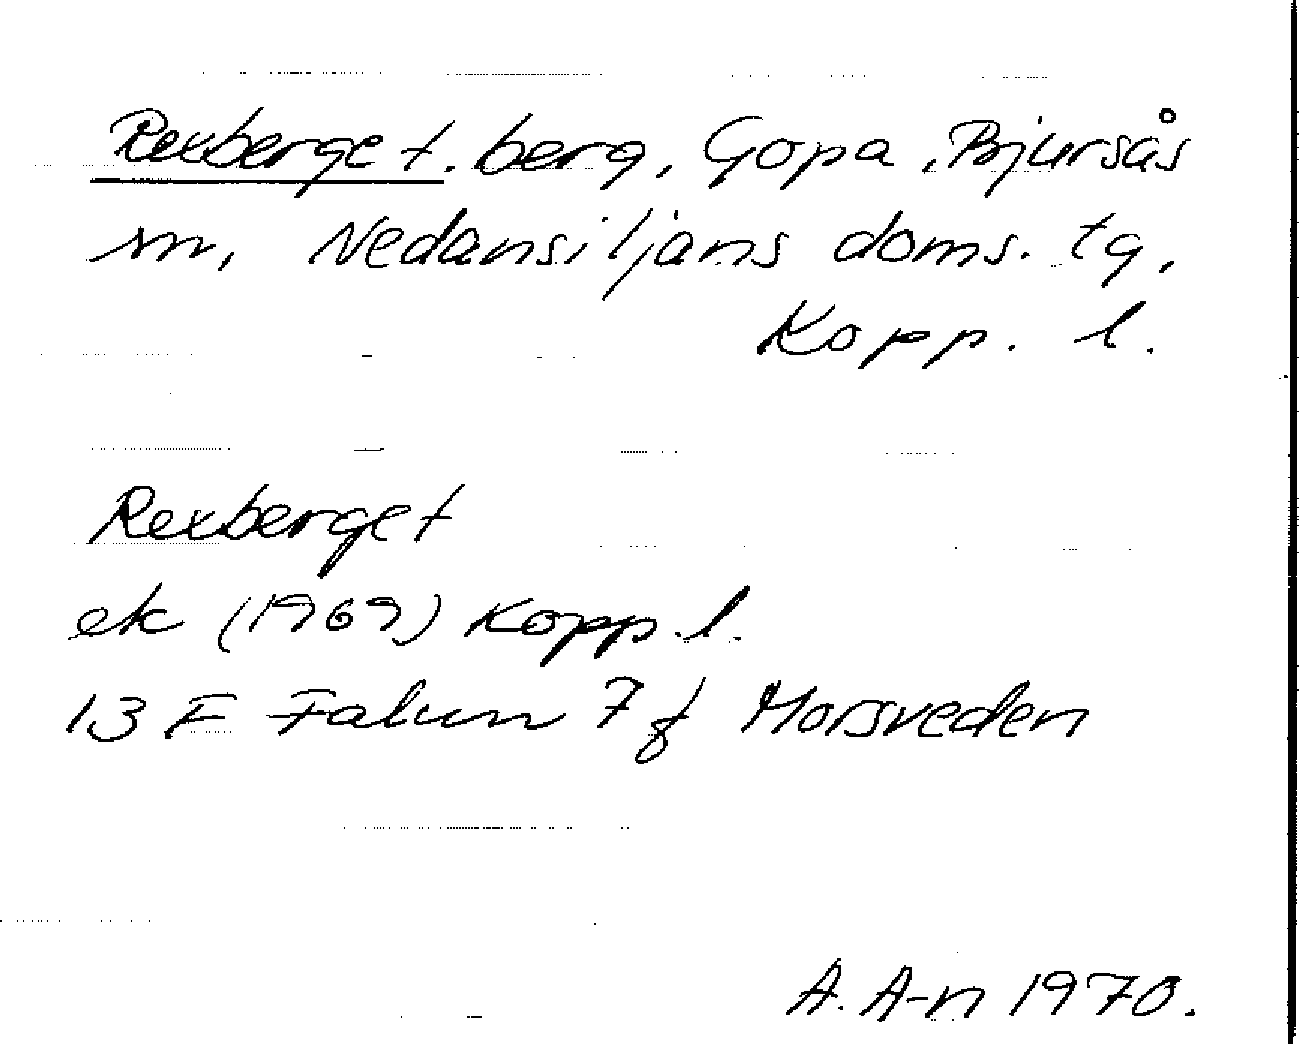 Rexberget. berg, Gopa, Bjursås
sn, Nedansiljans doms. tg,
Kopp. l.
Rexberget
ek (1969) Kopp.l.
13 F Falun 7 f Morsveden
A. A-n 1970.